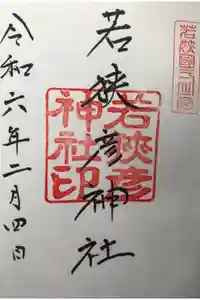 若狭國一の宮
若狭彦神社
若狭彦
神社印
令和六年二月四日